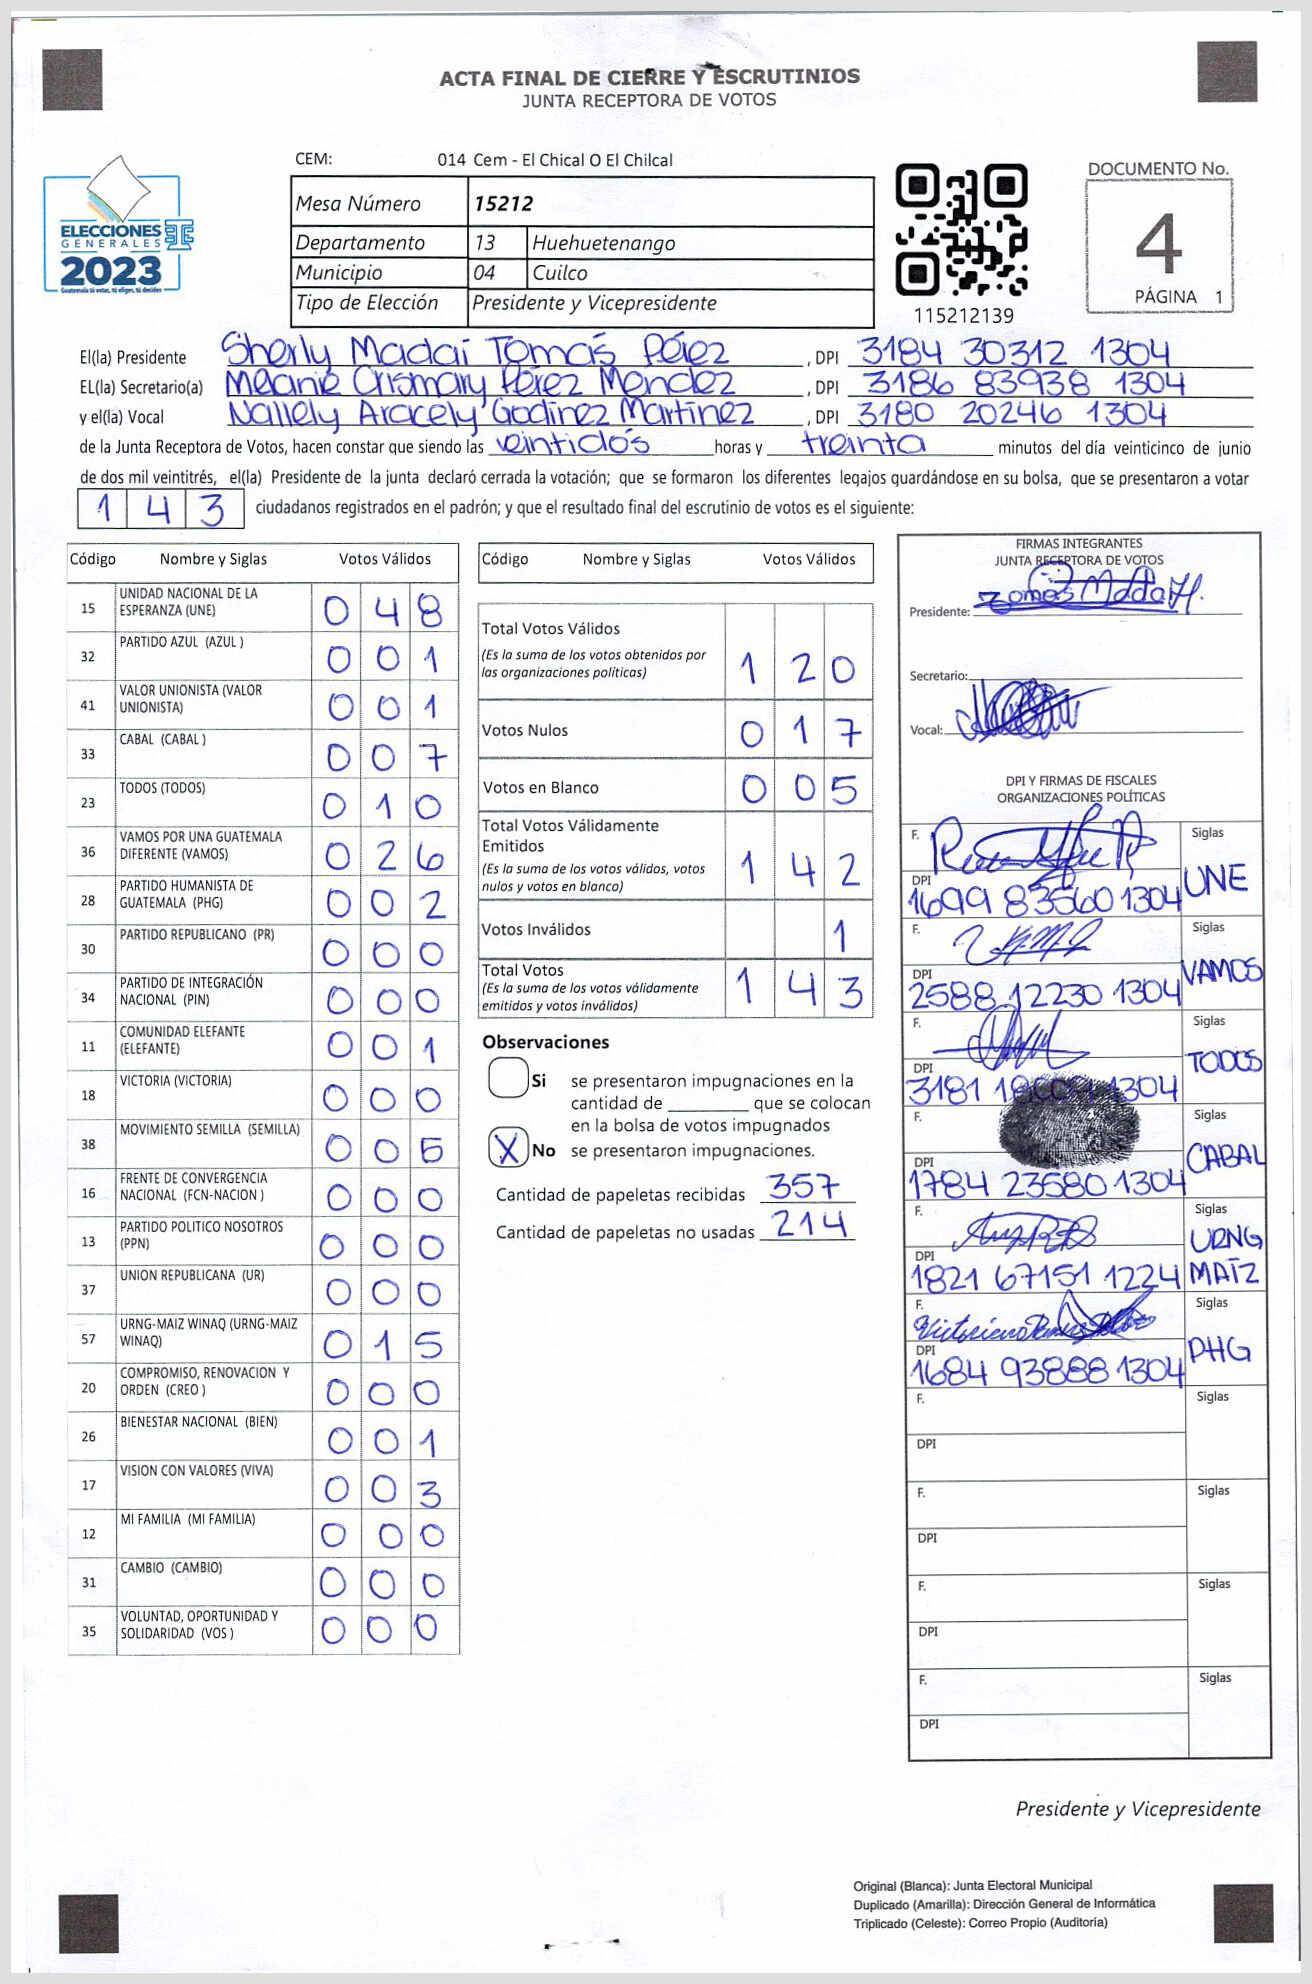 ACTA FINAL DE CIERRE Y ESCRUTINIOS
JUNTA RECEPTORA DE VOTOS
CEM: 014 Cem - El Chical O El Chilcal
ELECCIONES
GENERALES
2023
Guatemala tú votas, tú eliges, tú decides
Mesa Número 15212
Departamento 13 Huehuetenango
Municipio 04 Cuilco
Tipo de Elección Presidente y Vicepresidente
115212139
DOCUMENTO No.
4
PÁGINA 1
El(la) Presidente Sherly Madaí Tomás Pérez, DPI 3184 30312 1304
EL(la) Secretario(a) Melanie Crismary Pérez Mendez, DPI 3186 83938 1304
y el(la) Vocal Nallely Aracely Godinez Martinez, DPI 3180 20246 1304
de la Junta Receptora de Votos, hacen constar que siendo las veintidós horas y treinta minutos del día veinticinco de junio
de dos mil veintitrés, el(la) Presidente de la junta declaró cerrada la votación; que se formaron los diferentes legajos guardándose en su bolsa, que se presentaron a votar
1 4 3 ciudadanos registrados en el padrón; y que el resultado final del escrutinio de votos es el siguiente:
Código Nombre y Siglas Votos Válidos
15 UNIDAD NACIONAL DE LA ESPERANZA (UNE) 0 4 8
32 PARTIDO AZUL (AZUL ) 0 0 1
41 VALOR UNIONISTA (VALOR UNIONISTA) 0 0 1
33 CABAL (CABAL ) 0 0 7
23 TODOS (TODOS) 0 1 0
36 VAMOS POR UNA GUATEMALA DIFERENTE (VAMOS) 0 2 6
28 PARTIDO HUMANISTA DE GUATEMALA (PHG) 0 0 2
30 PARTIDO REPUBLICANO (PR) 0 0 0
34 PARTIDO DE INTEGRACIÓN NACIONAL (PIN) 0 0 0
11 COMUNIDAD ELEFANTE (ELEFANTE) 0 0 1
18 VICTORIA (VICTORIA) 0 0 0
38 MOVIMIENTO SEMILLA (SEMILLA) 0 0 5
16 FRENTE DE CONVERGENCIA NACIONAL (FCN-NACION ) 0 0 0
13 PARTIDO POLITICO NOSOTROS (PPN) 0 0 0
37 UNION REPUBLICANA (UR) 0 0 0
57 URNG-MAIZ WINAQ (URNG-MAIZ WINAQ) 0 1 5
20 COMPROMISO, RENOVACION Y ORDEN (CREO ) 0 0 0
26 BIENESTAR NACIONAL (BIEN) 0 0 1
17 VISION CON VALORES (VIVA) 0 0 3
12 MI FAMILIA (MI FAMILIA) 0 0 0
31 CAMBIO (CAMBIO) 0 0 0
35 VOLUNTAD, OPORTUNIDAD Y SOLIDARIDAD (VOS ) 0 0 0
Código Nombre y Siglas Votos Válidos
Total Votos Válidos
(Es la suma de los votos obtenidos por
las organizaciones politicas) 1 2 0
Votos Nulos 0 1 7
Votos en Blanco 0 0 5
Total Votos Válidamente
Emitidos
(Es la suma de los votos válidos, votos
nulos y votos en blanco) 1 4 2
Votos Inválidos 1
Total Votos
(Es la suma de los votos válidamente
emitidos y votos inválidos) 1 4 3
Observaciones
Si se presentaron impugnaciones en la
cantidad de ________ que se colocan
en la bolsa de votos impugnados
X No se presentaron impugnaciones.
Cantidad de papeletas recibidas 357
Cantidad de papeletas no usadas 214
FIRMAS INTEGRANTES
JUNTA RECEPTORA DE VOTOS
Presidente:
Secretario:
Vocal:
DPI Y FIRMAS DE FISCALES
ORGANIZACIONES POLÍTICAS
F. Siglas
DPI 1699 83560 1304 UNE
F. Siglas
DPI 2588 12230 1304 VAMOS
F. Siglas
DPI 3181 1304 TODOS
F. Siglas
DPI 1784 23580 1304 CABAL
F. Siglas
DPI 1821 67151 1224 URNG MAÍZ
F. Siglas
DPI 1684 93888 1304 PHG
F. Siglas
DPI
F. Siglas
DPI
F. Siglas
DPI
F. Siglas
DPI
Presidente y Vicepresidente
Original (Blanca): Junta Electoral Municipal
Duplicado (Amarilla): Dirección General de Informática
Triplicado (Celeste): Correo Propio (Auditoría)